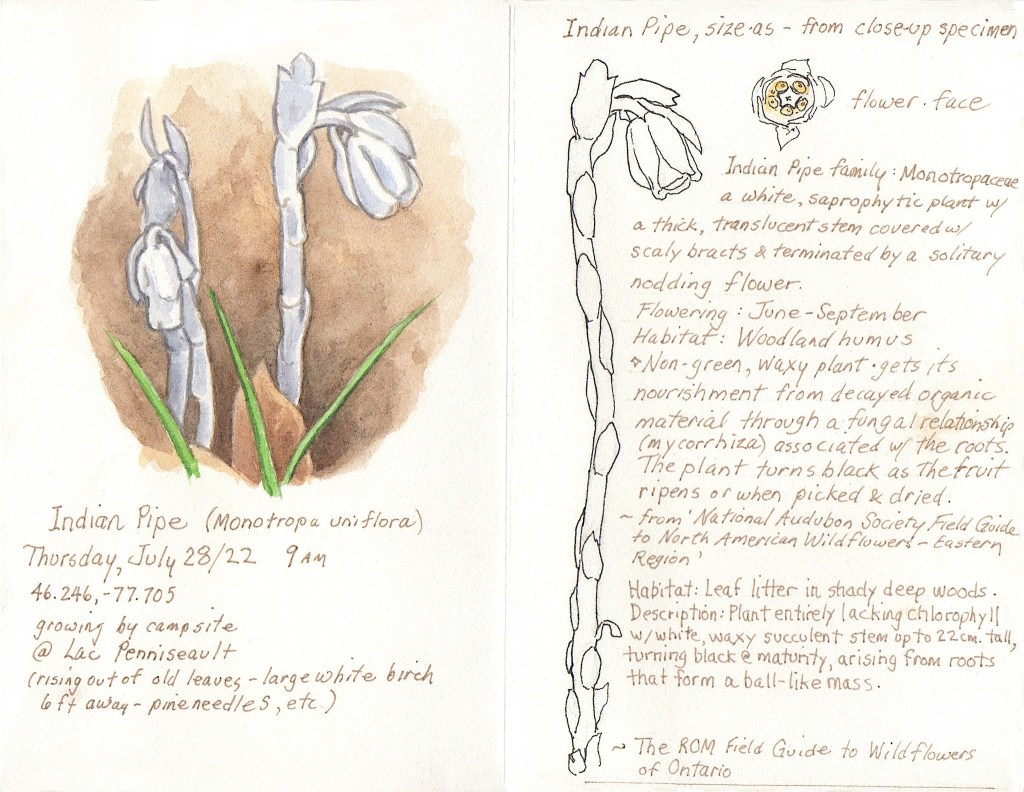 Indian Pipe (Monotropa uniflora)
Thursday, July 28/22 9 AM
46.246, -77.705
growing by campsite
@ Lac Penniseault
(rising out of old leaves - large white birch
6 ft away - pine needles, etc.)
Indian Pipe, size-as - from close-up specimen
flower · face
Indian Pipe family: Monotropaceae
a white, saprophytic plant w/
a thick, translucent stem covered w/
scaly bracts & terminated by a solitary
nodding flower.
Flowering: June - September
Habitat: Woodland humus
Non-green, waxy plant · gets its
nourishment from decayed organic
material through a fungal relationship
(mycorrhiza) associated w/ the roots.
The plant turns black as The fruit
ripens or when picked & dried.
~ from 'National Audubon Society Field Guide
to North American Wildflowers - Eastern
Region'
Habitat: Leaf litter in shady deep woods.
Description: Plant entirely lacking chlorophyll
w/ white, waxy succulent stem up to 22cm. tall,
turning black @ maturity, arising from roots
that form a ball-like mass.
~ The ROM Field Guide to Wildflowers
of Ontario